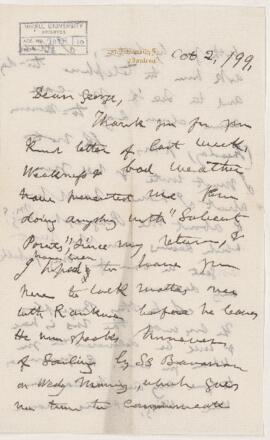 McGILL UNIVERSITY
ARCHIVES
ACC. NO.
REF.
Montreal
Oct 2, /99,
Dear George,
Thank you for your
kind letter of last week.
Weakness & bad weather
have prevented me from
doing anything with "Salient
Points," since my return, &
I hoped to have you
here to look matters over
with Rankine before he leaves
He now speaks however
of Sailing by SS Bavarian
on Wedy Morning, which gives
no time to communicate